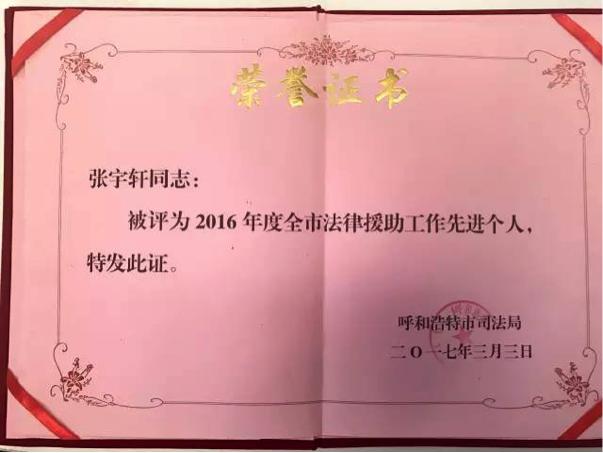 荣誉证书
张宇轩同志：
被评为2016年度全市法律援助工作先进个人，
特发此证。
呼和浩特市司法局
二〇一七年三月三日